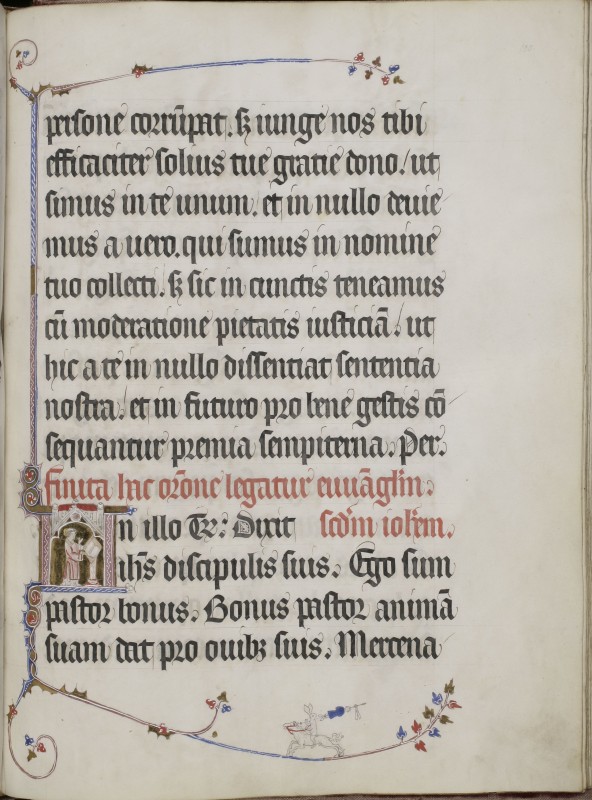 persone corrūpat. sꝫ iunge nos tibi
efficaciter solius tue gratie dono. ut
simus in te unum. et in nullo deuie
mus a uero. qui sumus in nomine
tuo collecti. sꝫ sic in cunctis teneamus
cū moderatione pietatis iusticiā. ut
hic a te in nullo dissentiat sententia
nostra. et in futuro pro bene gestis cō
sequantur premia sempiterna. Per.
finita hac orōne legatur euuāgl̄m.
In illo Tꝛ̄: Dixit scdm̄ ioħem.
ih̄s discipulis suis. Ego sum
pastor bonus. Bonus pastor animā
suam dat pro ouibꝫ suis. Mercena